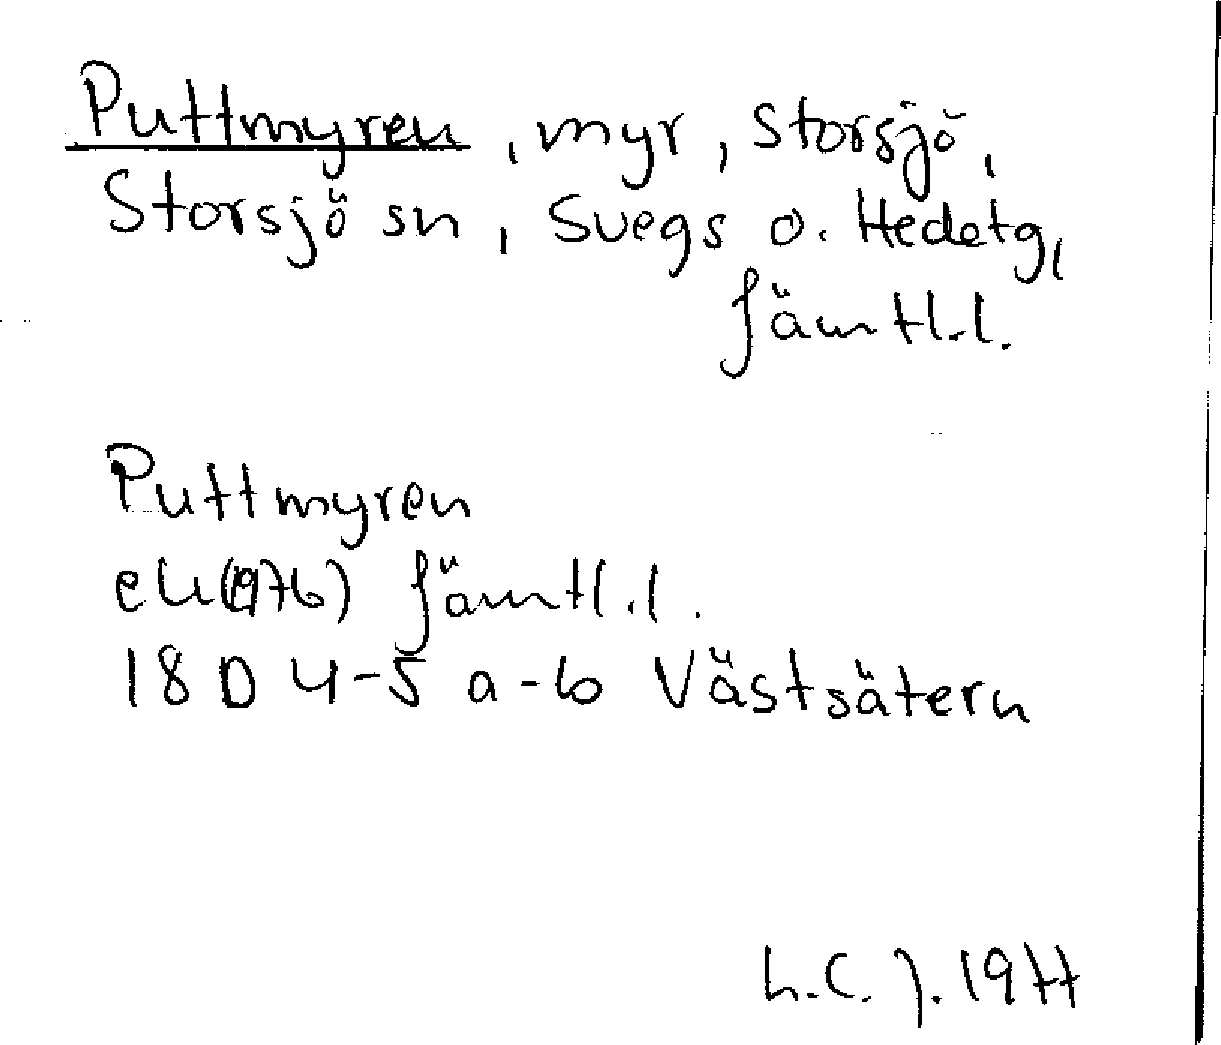 Puttmyren, myr, Storsjö,
Storsjö sn, Svegs o. Hedetg,
Jämtl.l.
Puttmyren
ek(1976) Jämtl.l.
18 D 4-5 a-b Västsätern
L.C. J. 1977